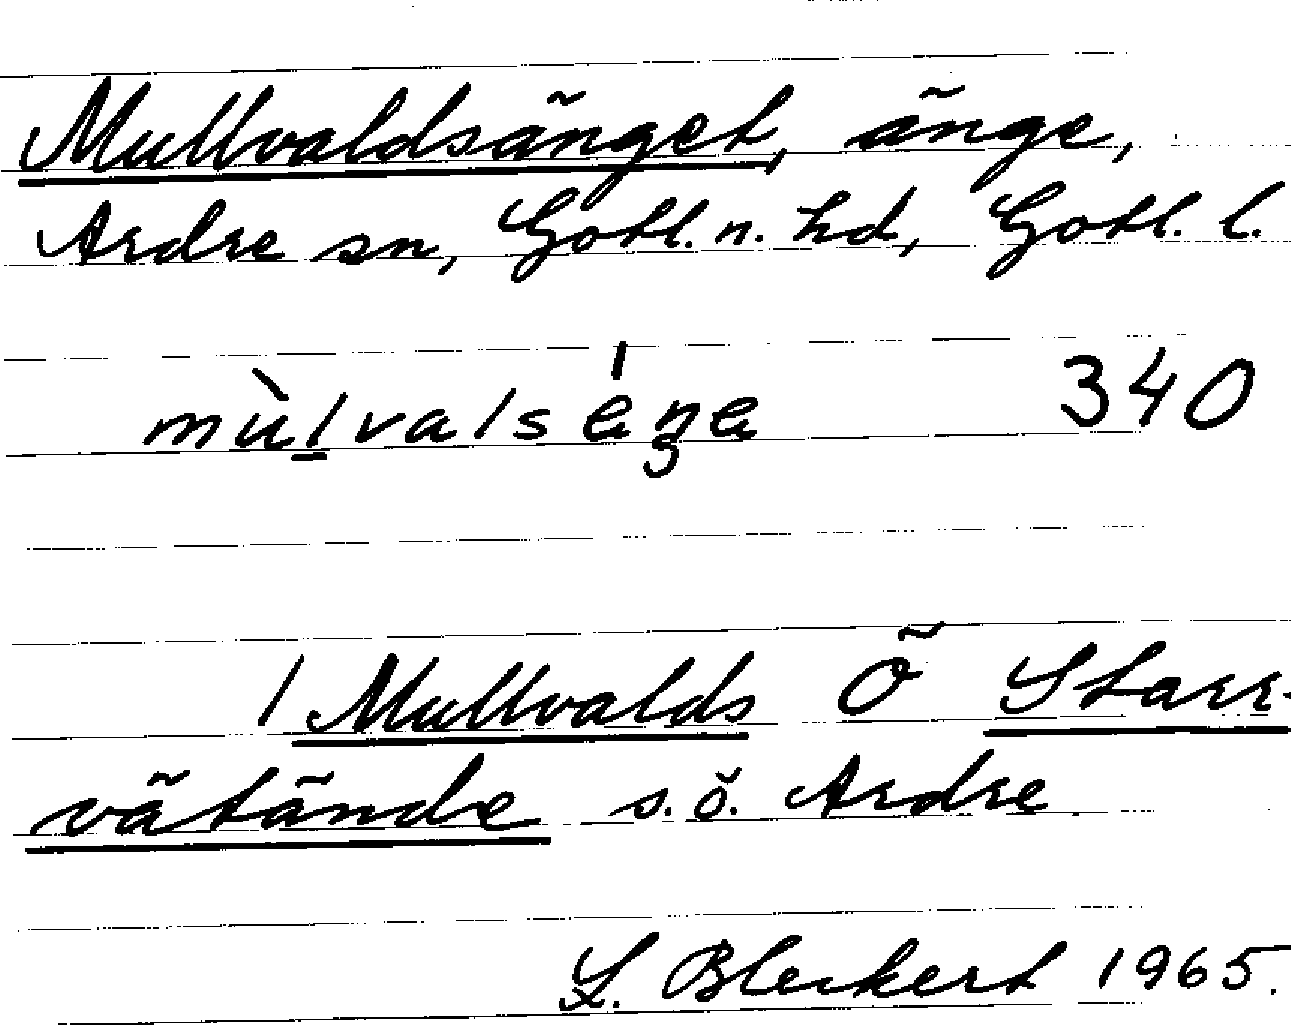 Mullvaldsänget, änge,
Ardre sn, Gotl. n. hd, Gotl. l.
mùlvalséŋe 340
/ Mullvalds Ö Starr-
vätände s.ö. Ardre
L. Bleckert 1965.